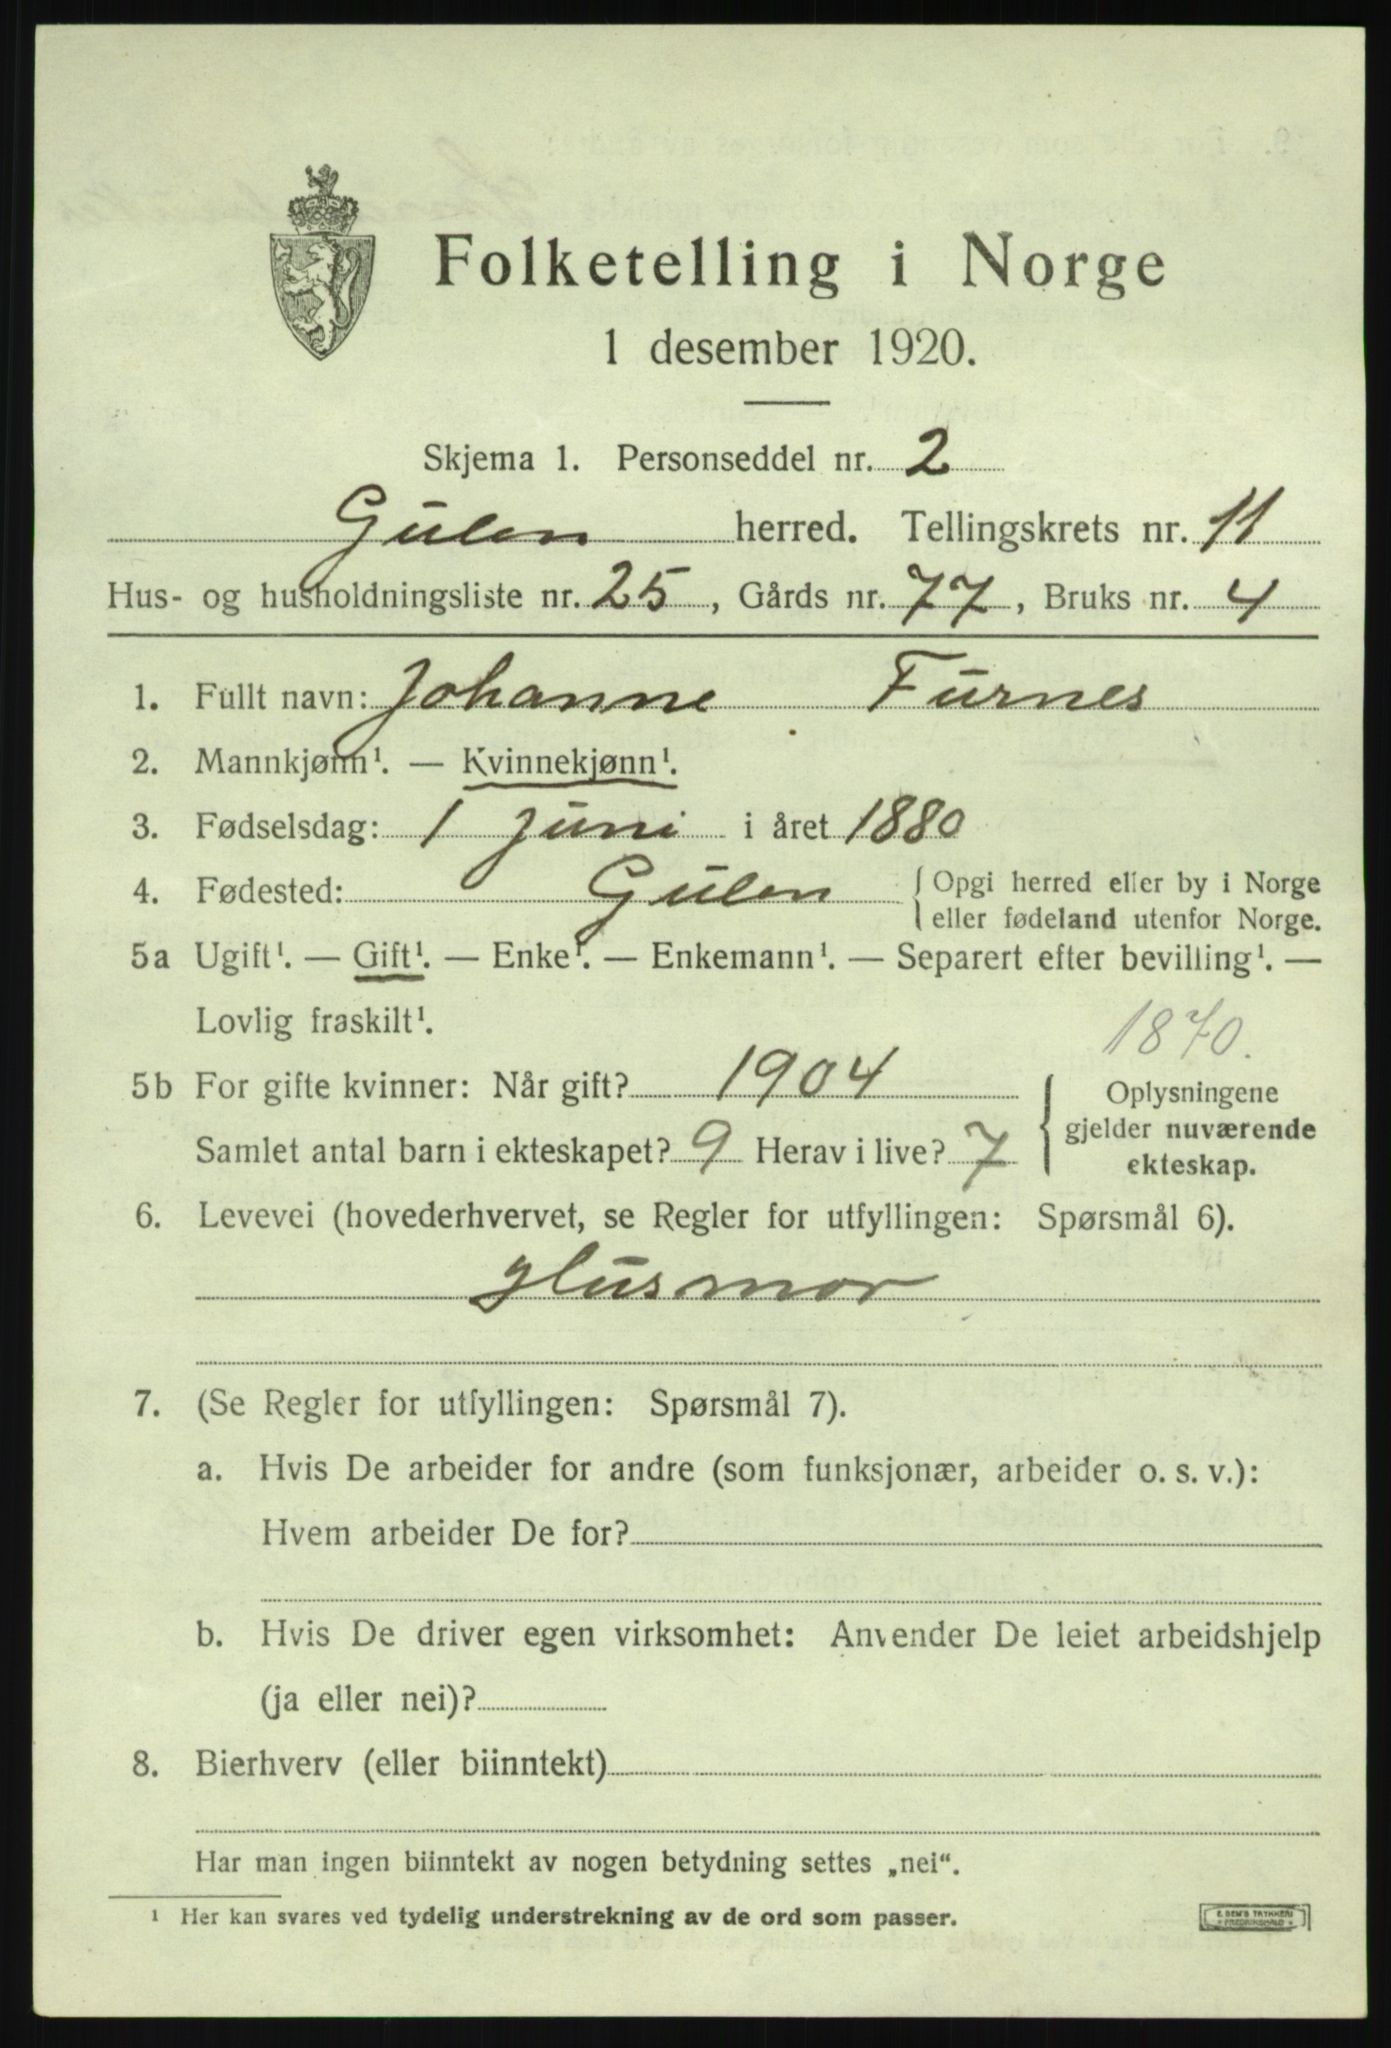 Folketelling i Norge
1 desember 1920.
Skjema 1. Personseddel nr. 2
Gulen herred. Tellingskrets nr. 11
Hus- og husholdningsliste nr. 25, Gårds nr. 77, Bruks nr. 4
1. Fullt navn: Johanne Furnes
2. Mannkjønn¹. — Kvinnekjønn¹.
3. Fødselsdag: 1 juni i året 1880
4. Fødested: Gulen { Opgi herred eller by i Norge
eller fødeland utenfor Norge.
5a Ugift¹. — Gift¹. — Enke¹. — Enkemann¹. — Separert efter bevilling¹. —
Lovlig fraskilt¹.
1870.
5b For gifte kvinner: Når gift? 1904
Samlet antal barn i ekteskapet? 9 Herav i live? 7
{ Oplysningene
gjelder nuværende
ekteskap.
6. Levevei (hovederhvervet, se Regler for utfyllingen: Spørsmål 6).
Husmor
7. (Se Regler for utfyllingen: Spørsmål 7).
a. Hvis De arbeider for andre (som funksjonær, arbeider o. s. v.):
Hvem arbeider De for?
b. Hvis De driver egen virksomhet: Anvender De leiet arbeidshjelp
(ja eller nei)?
8. Bierhverv (eller biinntekt)
Har man ingen biinntekt av nogen betydning settes „nei“.
¹ Her kan svares ved tydelig understrekning av de ord som passer.
E. SEM'S TRYKKERI
FREDRIKSHALD